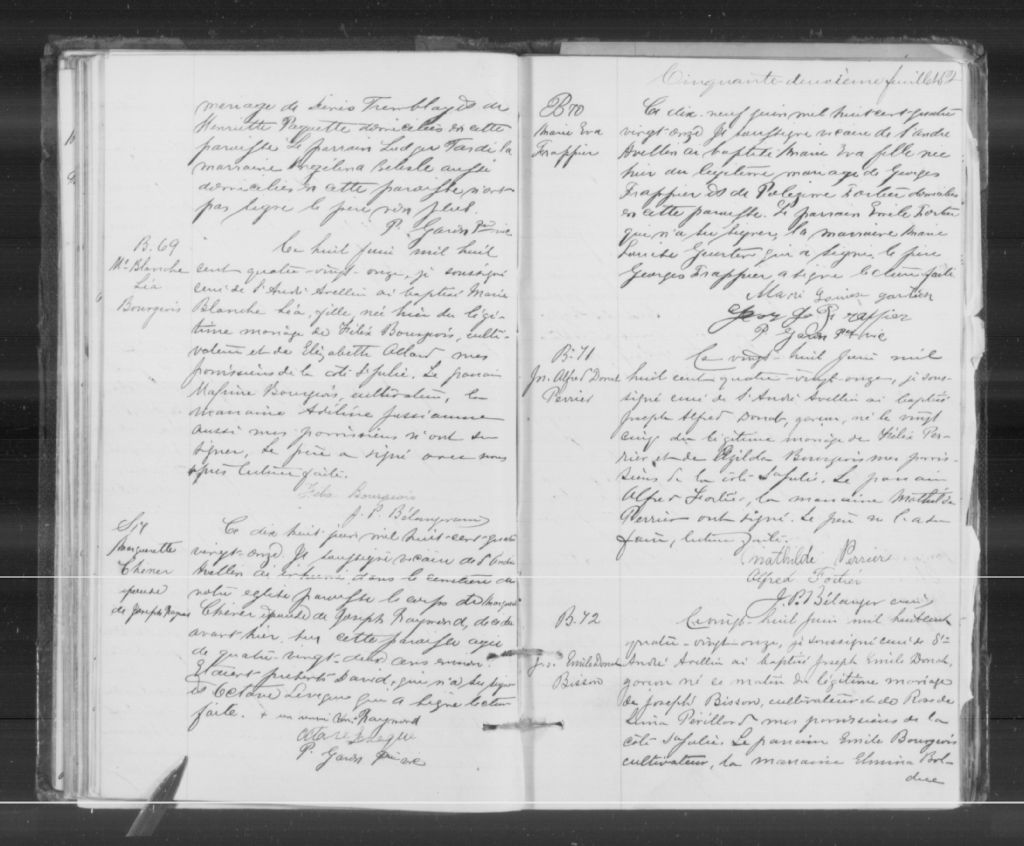 menage de Denis Tremblay et de
Henriette Paquette domiciliés en cette
paroisse Le parrain Ludger Tardif la
marraine Celeste aussi
domiciliés en cette paroisse n'ont
pas signé le père non plus.
P. Garon Ptre vic
B. 69
Me Blanche
Léa
Bourgeois
Ce huit Juin mil huit
cent quatre-vingt-onze, je soussigné
curé de St André Avellin ai baptisé Marie
Blanche Léa, fille, née hier du légi-
time mariage de Félix Bourgeois, culti-
vateur et de Elizabette Allard, mes
paroissiens de la côte St Julie. Le parrain
Bourgeois, cultivateur, la
marraine Adéline Jussiaume
aussi mes paroissiens n'ont su
signer, Le père a signé avec nous
après lecture faite.
Felix Bourgeois
J. P. Bélanger curé
S 14
Marguerite
Chéner
épouse
de Joseph Raymond
Ce dix huit juin mil huit-cent-quatre
vingt-onze Je soussigné vicaire de St André
Avellin ai inhumé dans le cimetière de
notre église paroisse le corps de Marguerite
Chéner épouse de Joseph Raymond, décédée
avant hier, en cette paroisse agée
de quatre-vingt-deux ans environ.
Etaient présents David, qui n'a su signer
et Octave Levesque qui a signé lecture
faite. + un mot Raymond
Octave Levesque
P. Garon ptre vic
Cinquante-deuxième feuillet 52
B 70
Marie Eva
Frappier
Ce dix neuf juin mil huit cent quatre
vingt-onze Je soussigné vicaire de St André
Avellin ai baptisé Marie Eva fille née
hier du légitime mariage de Georges
Frappier et de Fortier domiciliés
en cette paroisse. Le parrain Emile Fortier
qui n'a su signer, la marraine Marie
Louise qui a signé, le père
Georges Frappier a signé lecture faite
Marie
Georg Frappier
P. Garon Ptre vic
B. 71
Jos. Alfred Donat
Perrier
Ce vingt-huit Juin mil
huit cent quatre-vingt-onze, je sous-
signé curé de St André Avellin ai baptisé
Joseph Alfred Donat, garçon, né le vingt
cinq du légitime mariage de Félix Per-
rier et de Azilda Bourgeois mes parois-
siens de la côte St Julie. Le parrain
Alfred Fortier, la marraine Mathilde
Perrier ont signé. Le père n'a su le
faire, lecture faite.
Mathilde Perrier
Alfred Fortier
J. P. Bélanger curé
B. 72
Jos. Emile Donat
Bisson
Ce vingt-huit Juin mil huit cent
quatre-vingt-onze, je soussigné curé de St
André Avellin ai baptisé Joseph Emile Donat,
garçon né ce matin du légitime mariage
de Joseph Bisson, cultivateur et de Rose de
Lima Périllard mes paroissiens de la
côte St Julie. Le parrain Emile Bourgeois
cultivateur, la marraine Elmina Bol-
duc